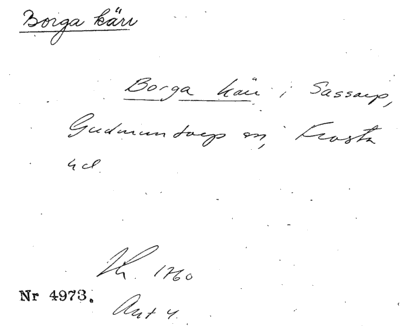 Borga kärr
Borga kärr i Sassarp,
Gudmuntorp sn, Frosta
hd
Kr. 1760
Nr 4973.
Akt 4